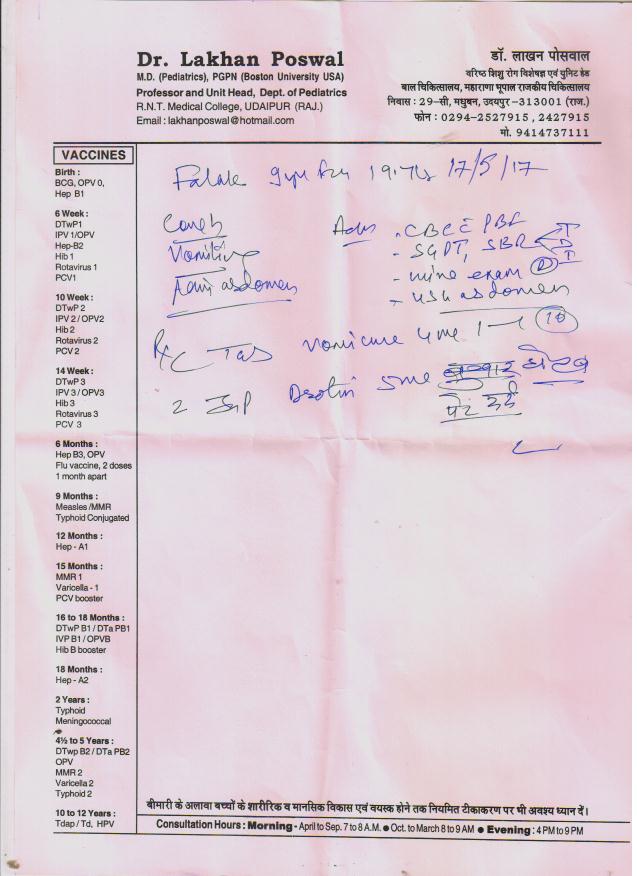 Dr. Lakhan Poswal
M.D. (Pediatrics), PGPN (Boston University USA)
Professor and Unit Head, Dept. of Pediatrics
R.N.T. Medical College, UDAIPUR (RAJ.)
Email : lakhanposwal@hotmail.com
डॉ. लाखन पोसवाल
वरिष्ठ शिशु रोग विशेषज्ञ एवं युनिट हेड
बाल चिकित्सालय, महाराणा भूपाल राजकीय चिकित्सालय
निवास : 29-सी, मधुबन, उदयपुर-313001 (राज.)
फोन : 0294-2527915, 2427915
मो. 9414737111
VACCINES
Birth :
BCG, OPV 0,
Hep B1
6 Week :
DTwP1
IPV 1/OPV
Hep-B2
Hib 1
Rotavirus 1
PCV1
10 Week :
DTwP 2
IPV 2 / OPV2
Hib 2
Rotavirus 2
PCV 2
14 Week :
DTwP 3
IPV 3 / OPV3
Hib 3
Rotavirus 3
PCV 3
6 Months :
Hep B3, OPV
Flu vaccine, 2 doses
1 month apart
9 Months :
Measles /MMR
Typhoid Conjugated
12 Months :
Hep - A1
15 Months :
MMR 1
Varicella - 1
PCV booster
16 to 18 Months :
DTwP B1 / DTa PB1
IVP B1 / OPVB
Hib B booster
18 Months :
Hep - A2
2 Years :
Typhoid
Meningococcal
4½ to 5 Years :
DTwp B2 / DTa PB2
OPV
MMR 2
Varicella 2
Typhoid 2
10 to 12 Years :
Tdap / Td, HPV
17/5/17
Vomiting
Pain abdomen
- CBC PBF
- SGPT, SBR T D I
- urine exam R
- USG abdomen
Rx Tab 4mg 1-1 10
2 5ml
पेट दर्द
बीमारी के अलावा बच्चों के शारीरिक व मानसिक विकास एवं वयस्क होने तक नियमित टीकाकरण पर भी अवश्य ध्यान दें।
Consultation Hours : Morning - April to Sep. 7 to 8 A.M. ● Oct. to March 8 to 9 AM ● Evening : 4 PM to 9 PM